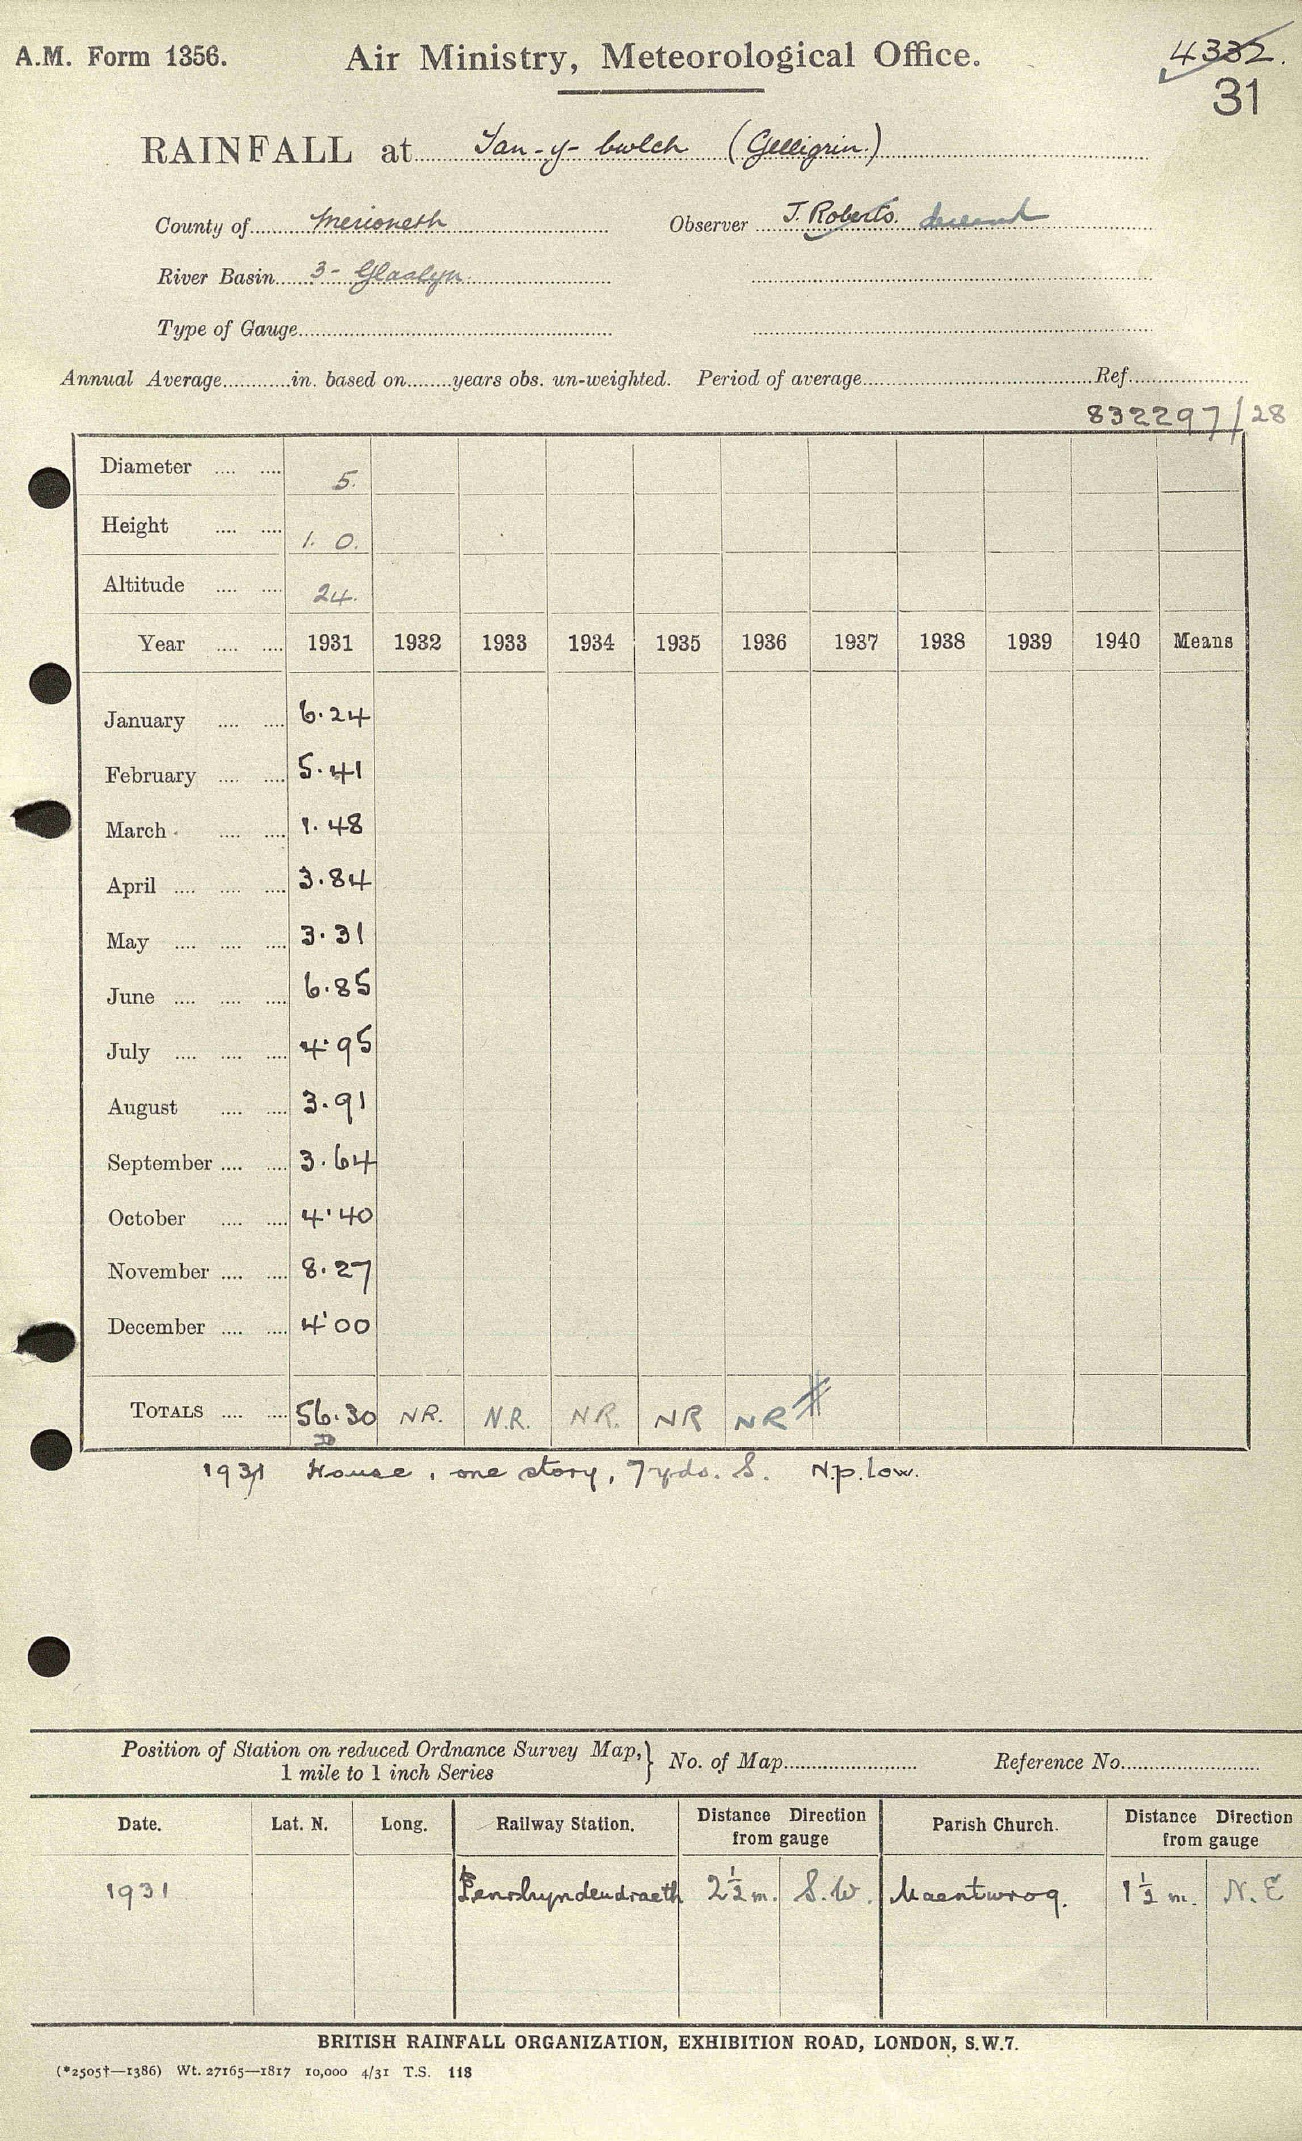 A.M. Form 1356. Air Ministry, Meteorological Office. 4332.
31
RAINFALL at Tan-y-bwlch (Gelligrin.)
County of Merioneth Observer J. Roberts.
River Basin 3- Glaslyn.
Type of Gauge
Annual Average in. based on years obs. un-weighted. Period of average Ref.
832297/28
Diameter 5.
Height 1. 0.
Altitude 24.
Year 1931 1932 1933 1934 1935 1936 1937 1938 1939 1940 Means
January 6.24
February 5.41
March 1.48
April 3.84
May 3.31
June 6.85
July 4.95
August 3.91
September 3.64
October 4.40
November 8.27
December 4.00
TOTALS 56.30 NR. N.R. NR. NR NR
1931 House, one story, 7 yds. S. N.p. low.
Position of Station on reduced Ordnance Survey Map, } No. of Map Reference No.
1 mile to 1 inch Series
Date. Lat. N. Long. Railway Station. Distance Direction from gauge Parish Church. Distance Direction from gauge
1931 Penrhyndeudraeth 2½ m. S.W. Maentwrog. 1½ m. N.E
BRITISH RAINFALL ORGANIZATION, EXHIBITION ROAD, LONDON, S.W.7.
(*2505†—1386) Wt. 27165—1817 10,000 4/31 T.S. 118